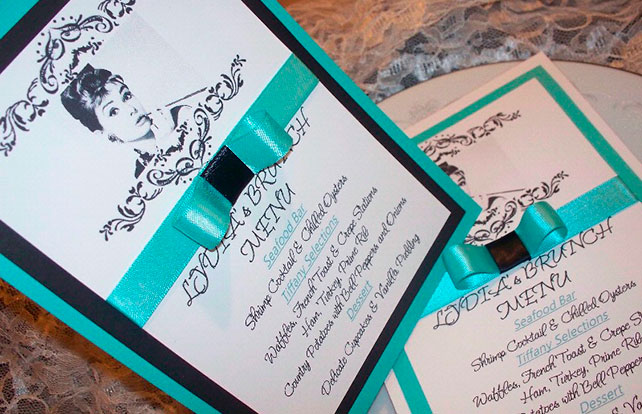 LYDIA's BRUNCH
MENU
Seafood Bar
Shrimp Cocktail & Chilled Oysters
Tiffany Selections
Waffles, French Toast & Crepe Stations
Ham, Turkey, Prime Rib
Country Potatoes with Bell Peppers and Onions
Dessert
Delicate Cupcakes & Vanilla Pudding
LYDIA's BRUNCH
MENU
Seafood Bar
Shrimp Cocktail & Chilled Oysters
Tiffany Selections
Waffles, French Toast & Crepe
Ham, Turkey, Prime Rib
Potatoes with Bell Peppers
Dessert